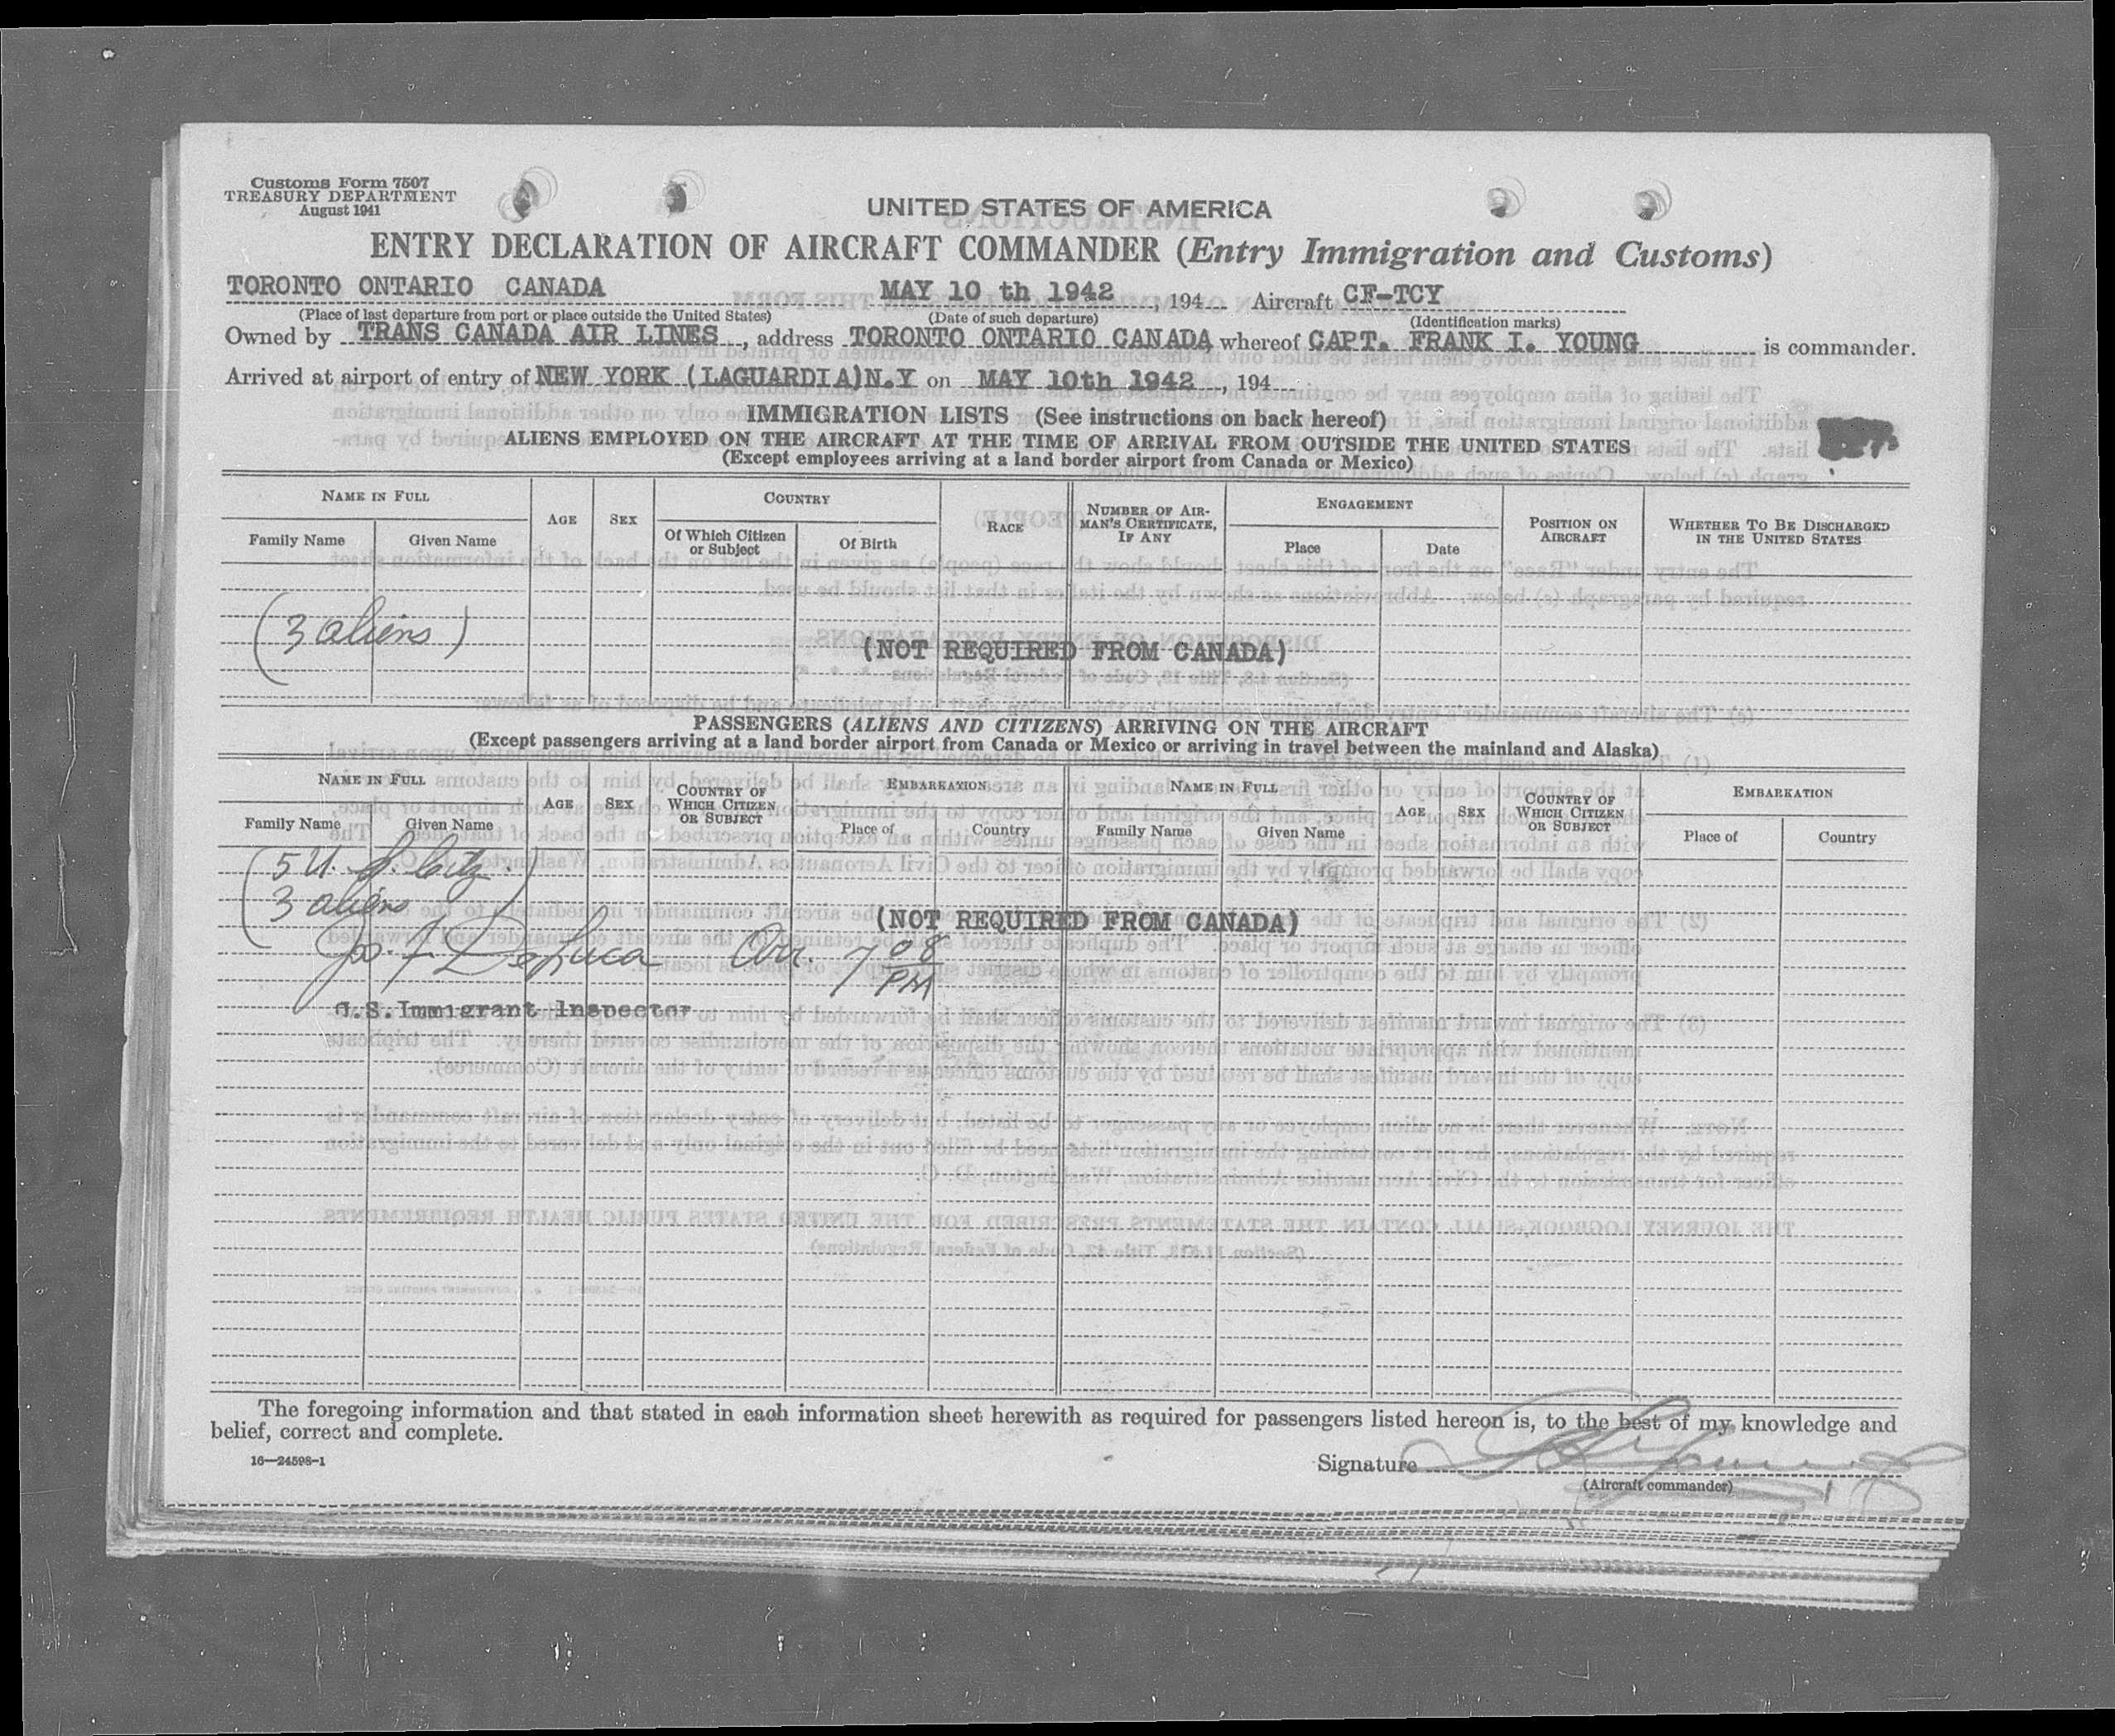 Customs Form 7507
TREASURY DEPARTMENT
August 1941
UNITED STATES OF AMERICA
ENTRY DECLARATION OF AIRCRAFT COMMANDER (Entry Immigration and Customs)
TORONTO ONTARIO CANADA MAY 10 th 1942, 194 Aircraft CF-TCY
(Place of last departure from port or place outside the United States) (Date of such departure) (Identification marks)
Owned by TRANS CANADA AIR LINES, address TORONTO ONTARIO CANADA whereof CAPT. FRANK I. YOUNG is commander.
Arrived at airport of entry of NEW YORK (LAGUARDIA)N.Y on MAY 10th 1942, 194
IMMIGRATION LISTS (See instructions on back hereof)
ALIENS EMPLOYED ON THE AIRCRAFT AT THE TIME OF ARRIVAL FROM OUTSIDE THE UNITED STATES
(Except employees arriving at a land border airport from Canada or Mexico)
NAME IN FULL AGE SEX COUNTRY RACE NUMBER OF AIRMAN'S CERTIFICATE, IF ANY ENGAGEMENT POSITION ON AIRCRAFT WHETHER TO BE DISCHARGED IN THE UNITED STATES
Family Name Given Name Of Which Citizen or Subject Of Birth Place Date
(3 aliens)
(NOT REQUIRED FROM CANADA)
PASSENGERS (ALIENS AND CITIZENS) ARRIVING ON THE AIRCRAFT
(Except passengers arriving at a land border airport from Canada or Mexico or arriving in travel between the mainland and Alaska)
NAME IN FULL AGE SEX COUNTRY OF WHICH CITIZEN OR SUBJECT EMBARKATION NAME IN FULL AGE SEX COUNTRY OF WHICH CITIZEN OR SUBJECT EMBARKATION
Family Name Given Name Place of Country Family Name Given Name Place of Country
(5 U. S. Citz.)
3 aliens
(NOT REQUIRED FROM CANADA)
Jos. F DeLuca Arr. 7 08 PM
U.S. Immigrant Inspector
The foregoing information and that stated in each information sheet herewith as required for passengers listed hereon is, to the best of my knowledge and
belief, correct and complete.
16—24598-1
Signature
(Aircraft commander)